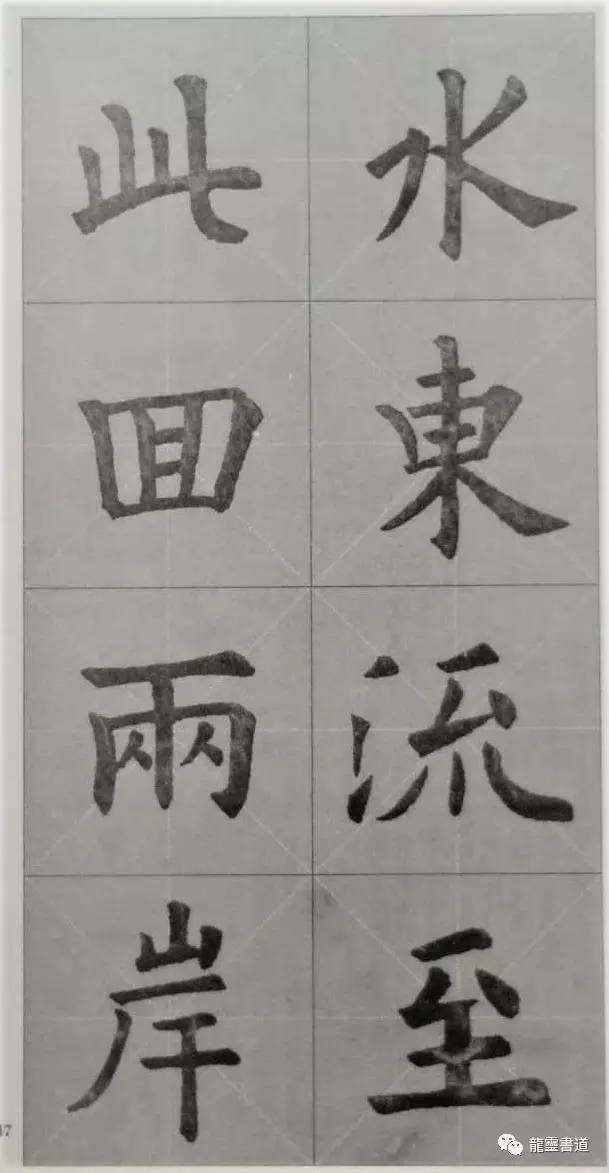 水東流至
此回兩岸
47
龍靈書道